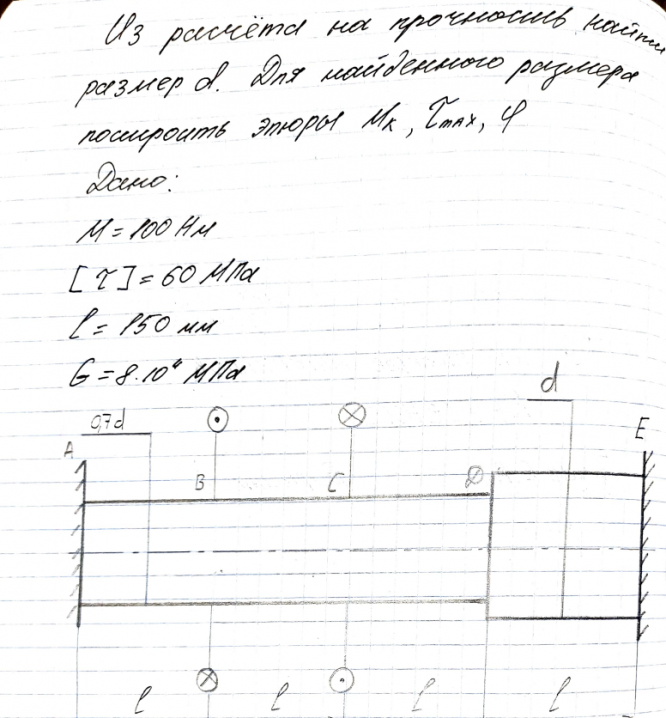 Из расчёта на прочность найти
размер d. Для найденного размера
построить эпюры Mк, τmax, φ
Дано:
M = 100 Нм
[τ] = 60 МПа
l = 150 мм
G = 8·10⁴ МПа
d
0,7d
A
B
C
D
E
l
l
l
l